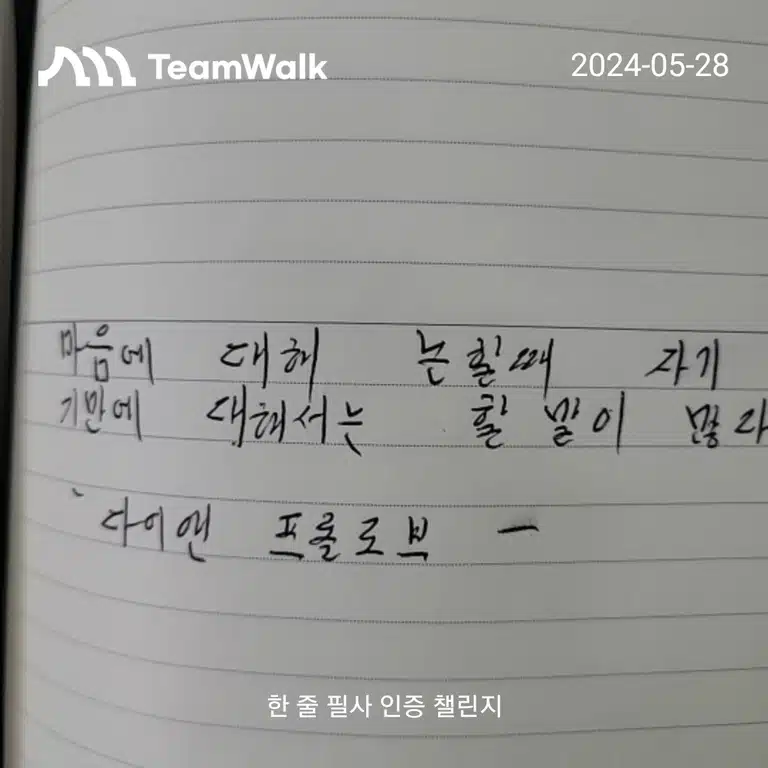 TeamWalk
2024-05-28
마음에 대해 논할때 자기
기만에 대해서는 할 말이 많다
다이엔 프롤로브 ㅡ
한 줄 필사 인증 챌린지